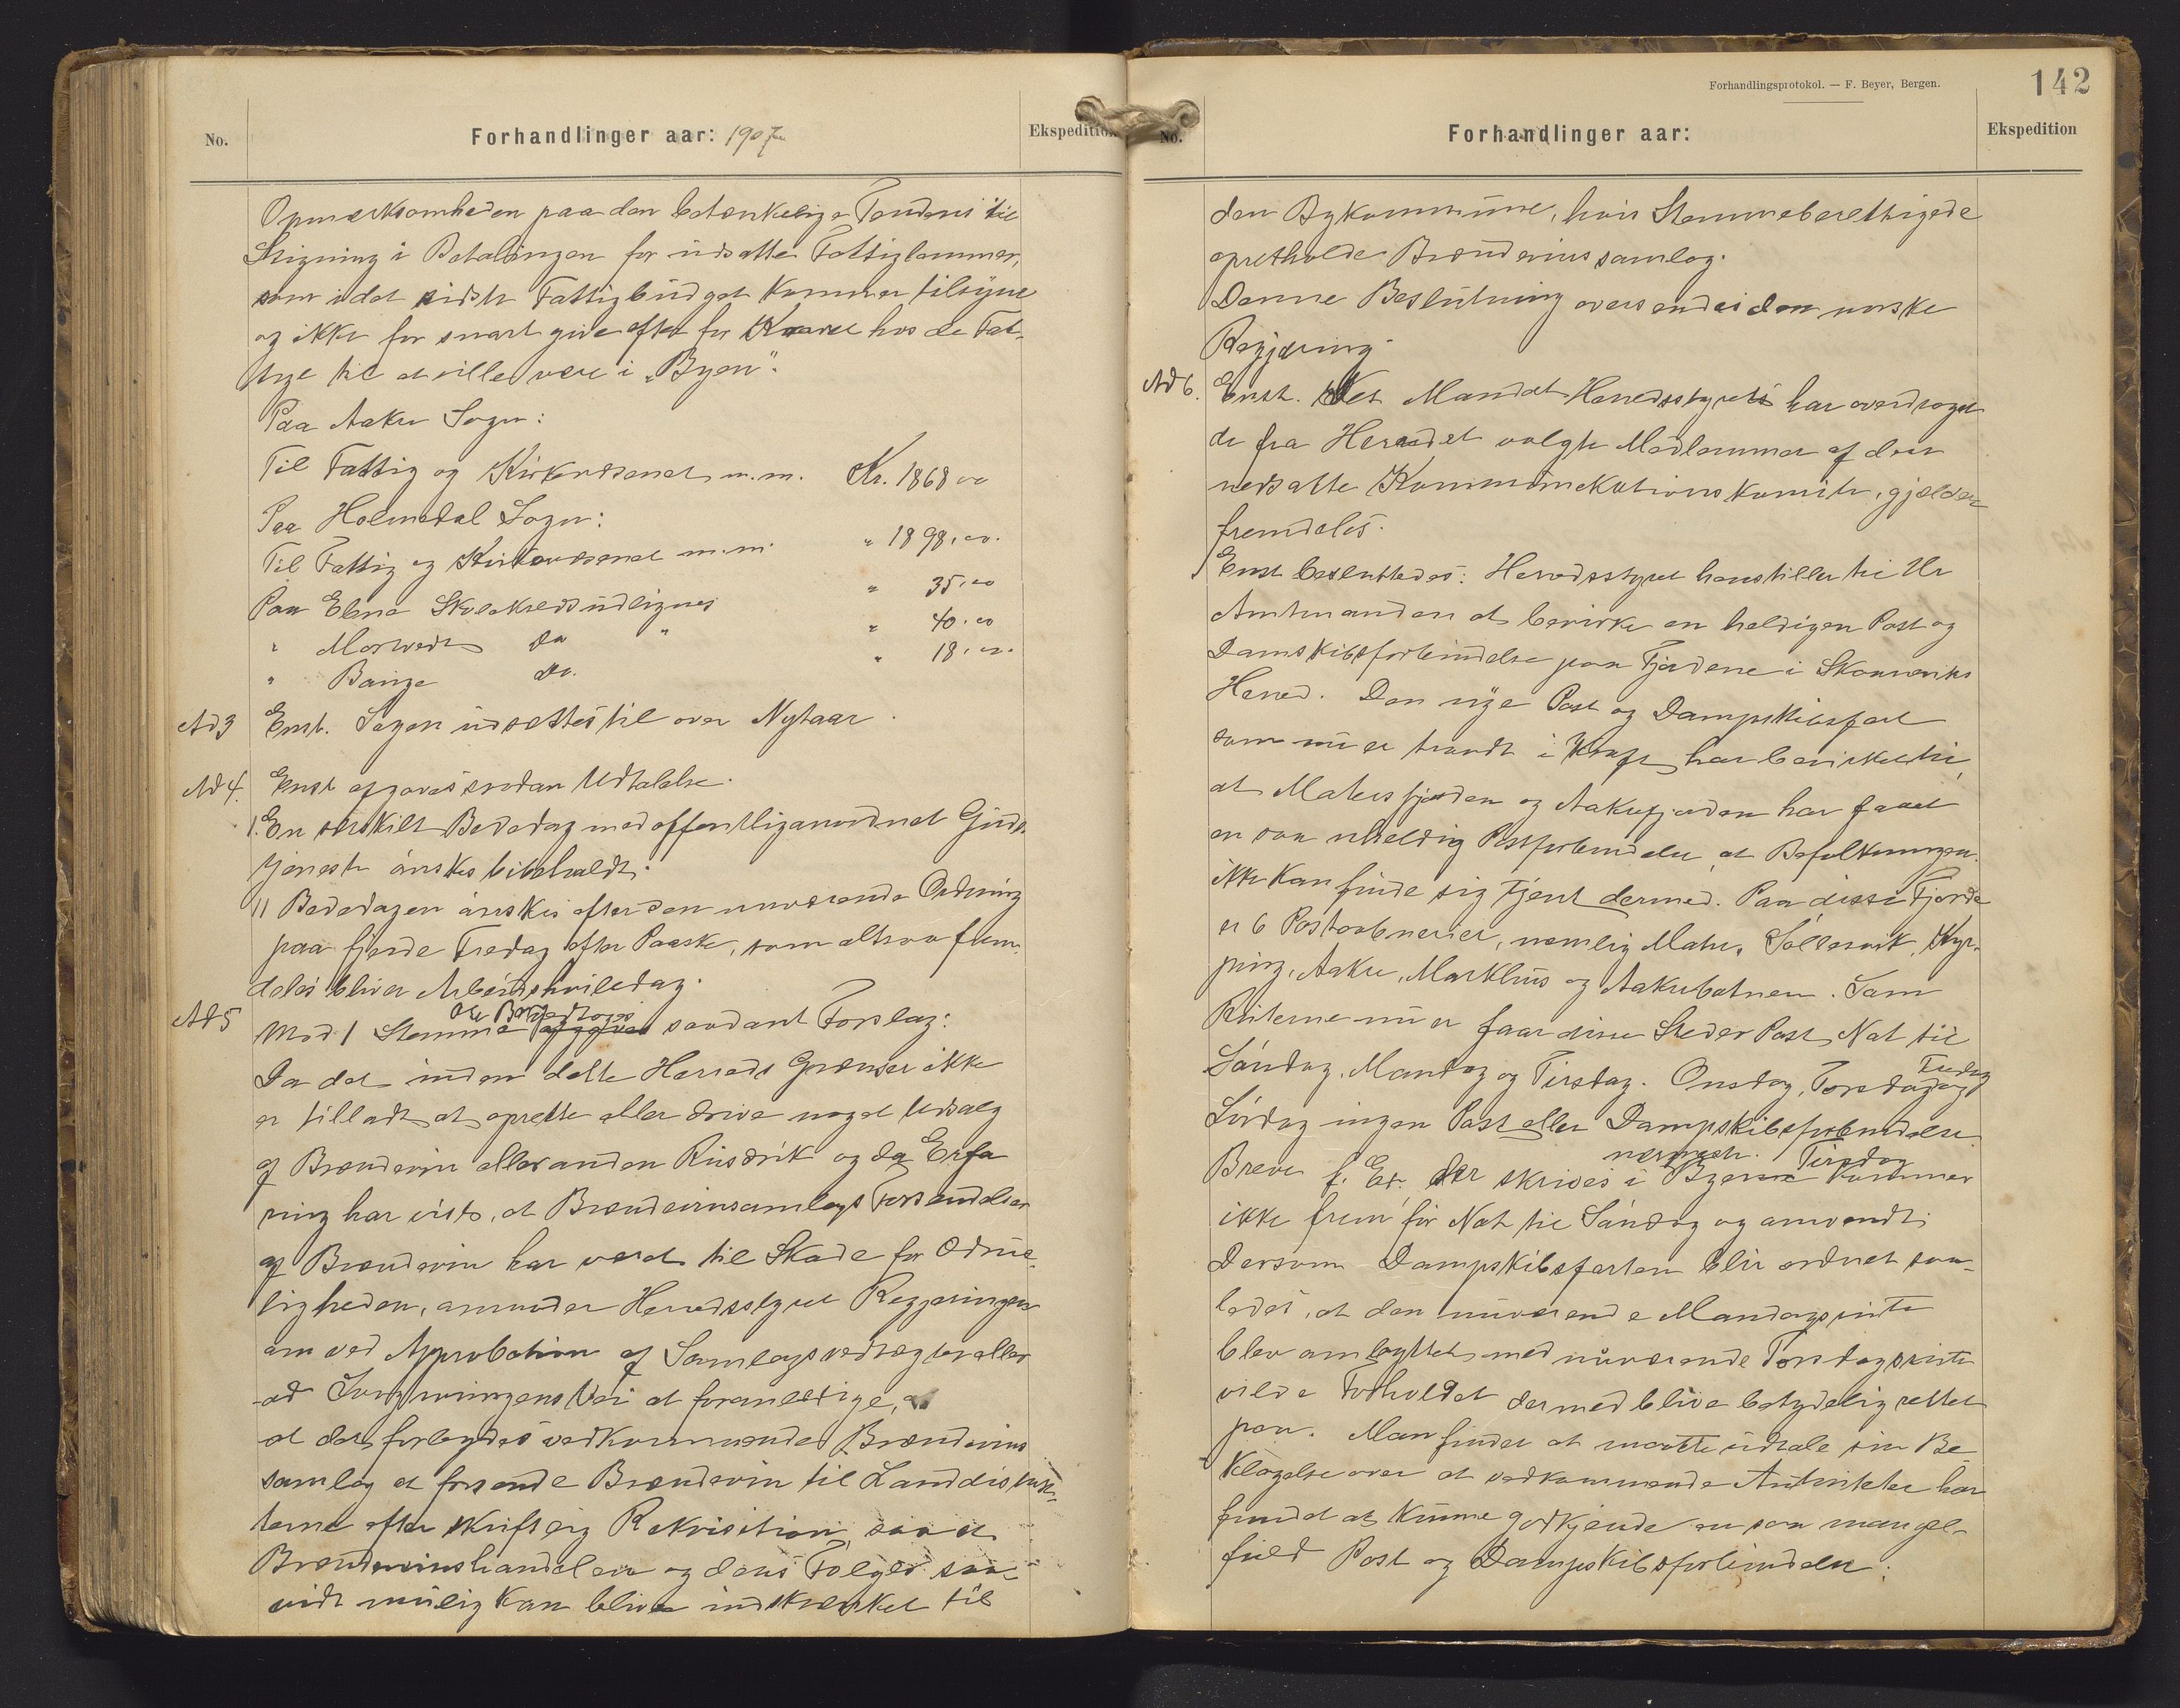 No.
Forhandlinger aar: 1907
Ekspedition
Opmærksomheden paa den betænkelige Tendens til
Stigning i Betalingen for udsatte Fattiglemmer,
som i det sidste Fattigbudget kommer tilsyne
og ikke for snart give efter for Kravet hos de Fat-
tige til at ville være i "Byen".
Paa Aakre Sogn:
Til Fattig og Kirkevæsenet m.m. Kr. 1868 00
Paa Holmedal Sogn:
Til Fattig og Kirkevæsenet m.m. " 1898,00.
Paa Ebne Skolekreds udlignes " 35,00
" Do " " 40,00
" Bauge Do. " 18,00.
Ad 3 Enst. Sagen udsættes til over Nytaar.
Ad 4. Enst afgaves saadan Udtalelse.
I. En særskilt Bededag med offentlig anordnet Guds-
tjeneste ønskes bibeholdt.
II Bededagen ønskes efter den nuværende Ordning
paa fjerde Fredag efter Paaske, som altsaa frem-
deles bliver Arbeidshviledag.
Ad 5 Mod 1 Stemme afgaves saadant Forslag:
Da det inden dette Herreds Grænser ikke
er tilladt at oprette eller drive noget Udsalg
af Brændevin eller anden Rusdrik og da Erfa
ring har vist, at Brændevinsamlags Forsendelser
af Brændevin har været til Skade for Ædrue-
ligheden, anmoder Herredsstyret Regjeringen
om ved Approbation af Samlagsvedtægter eller
ad Lovgivningens Vei at foranledige,
at det forbydes vedkommende Brændevins
samlag at forsende Brændevin til Landdistrik-
terne efter skriftlig Rekvisition, saa at
Brændevinshandelen og dens Følger saa-
vidt mulig kan blive indskrænket til
Forhandlingsprotokol. — F. Beyer, Bergen.
142
No.
Forhandlinger aar:
Ekspedition
den Bykommune, hvis Stemmeberettigede
opretholde Brændevinssamlag.
Denne Beslutning oversendes den norske
Regjering.
Ad 6. Enst. Det Mandat Herredsstyret har overdraget
de fra Herredet valgte Medlemmer af den
nedsatte Kommunikationskomite, gjelder
fremdeles.
Enst besluttedes: Herredsstyret henstiller til Hr
Amtmanden at bevirke en heldigere Post og
Damskibsforbindelse paa Fjordene i Skonevik
Herred. Den nye Post og Dampskibsfart
som nu er traadt i Kraft, har bevirket til,
at Matrefjorden og Aakrefjorden har faaet
en saa uheldig Postforbindelse, at Befolkningen
ikke kan finde sig tjent dermed. Paa disse Fjorde
er 6 Postaabnerier, nemlig Matre, Søllesvik, Kyr-
ping, Aakre, Markhus og Aakrebotnen. Som
Ruterne nu er faar disse Steder Post Nat til
Søndag, Mandag og Tirsdag. Onsdag, Torsdag, Fredag og
Lørdag ingen Post eller Dampskibsforbindelse.
Breve f. Ex. der skrives i nærmeste Byer Tirsdag kommer
ikke frem før Nat til Søndag og omvendt.
Dersom Dampskibsfarten blir ordnet saa-
ledes, at den nuværende Mandagsrute
blev ombyttet med nuværende Torsdagsrute
vilde Forholdet dermed blive betydelig rettet
paa. Man finder at maatte udtale sin Be-
klagelse over at vedkommende Autoriteter har
fundet at kunne godkjende en saa mangel-
fuld Post og Dampskibsforbindelse.